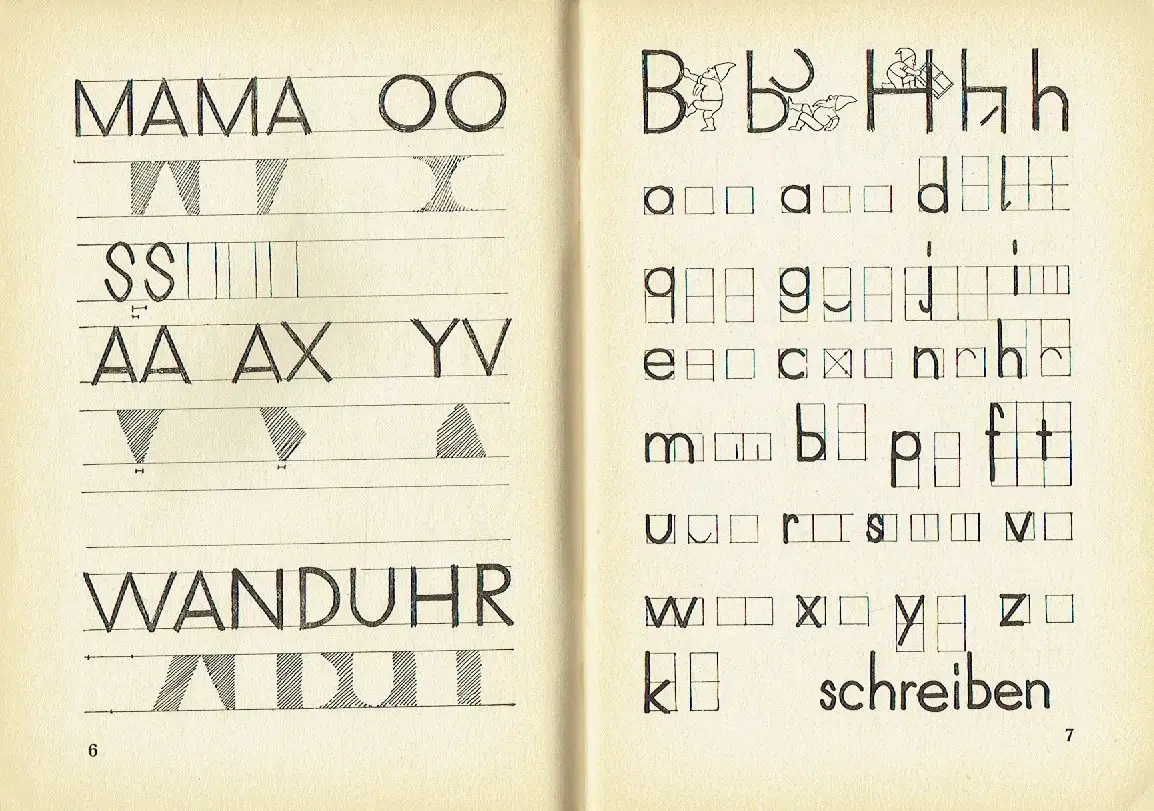 MAMA OO
SS
AA AX YV
WANDUHR
6
B b H h h
o a d l
q g j i
e c n h
m b p f t
u r s v
w x y z
k schreiben
7